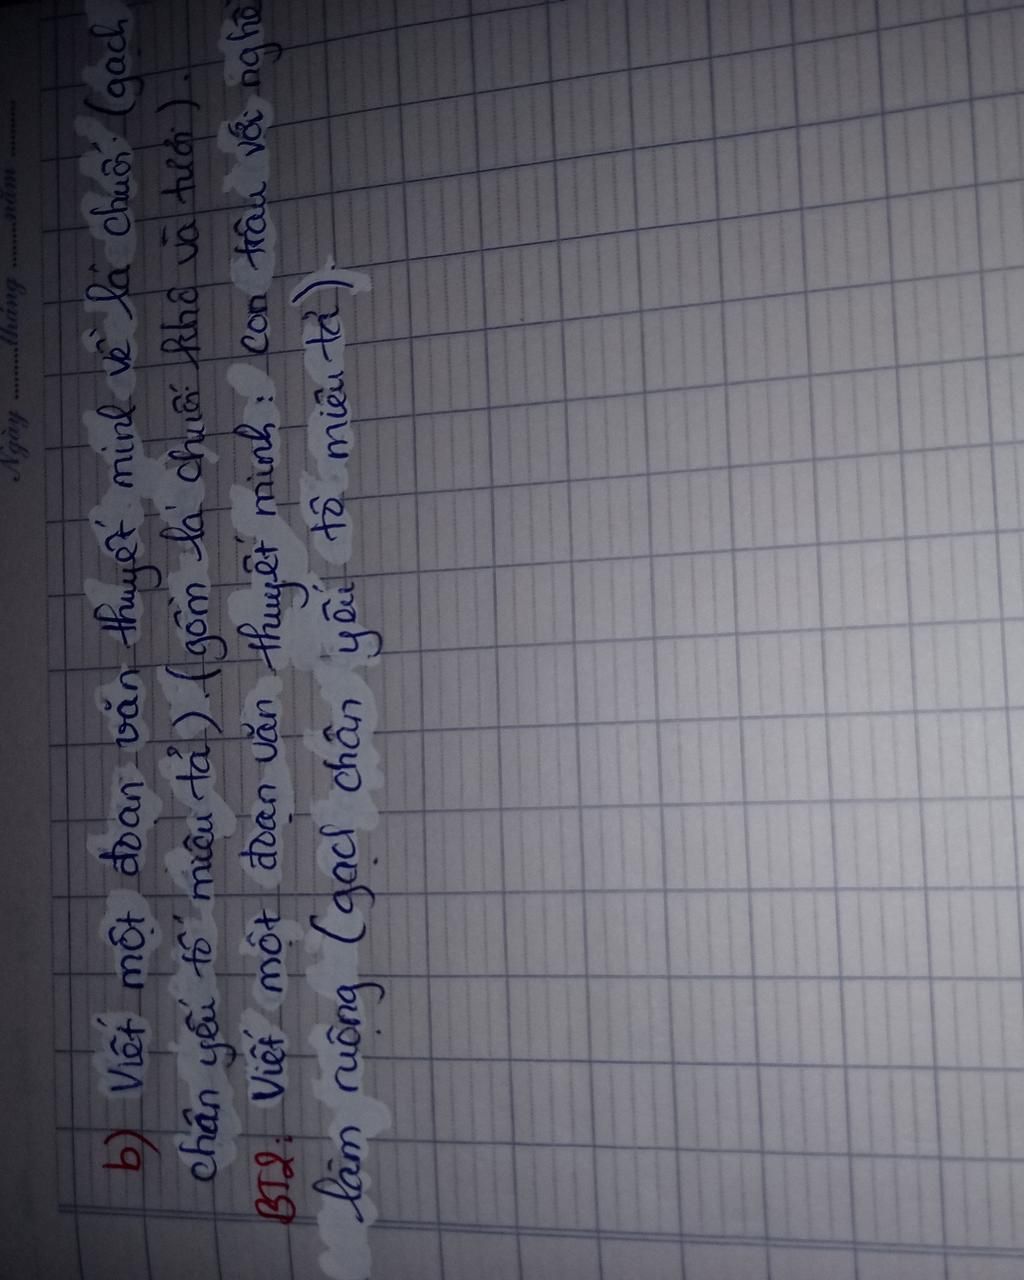 Ngày ........tháng ........năm ........
b) Viết một đoạn văn thuyết minh về lá chuối. (gạch
chân yếu tố miêu tả). (gồm lá chuối khô và tươi).
BT2: Viết một đoạn văn thuyết minh: con trâu với nghề
làm ruộng (gạch chân yếu tố miêu tả).